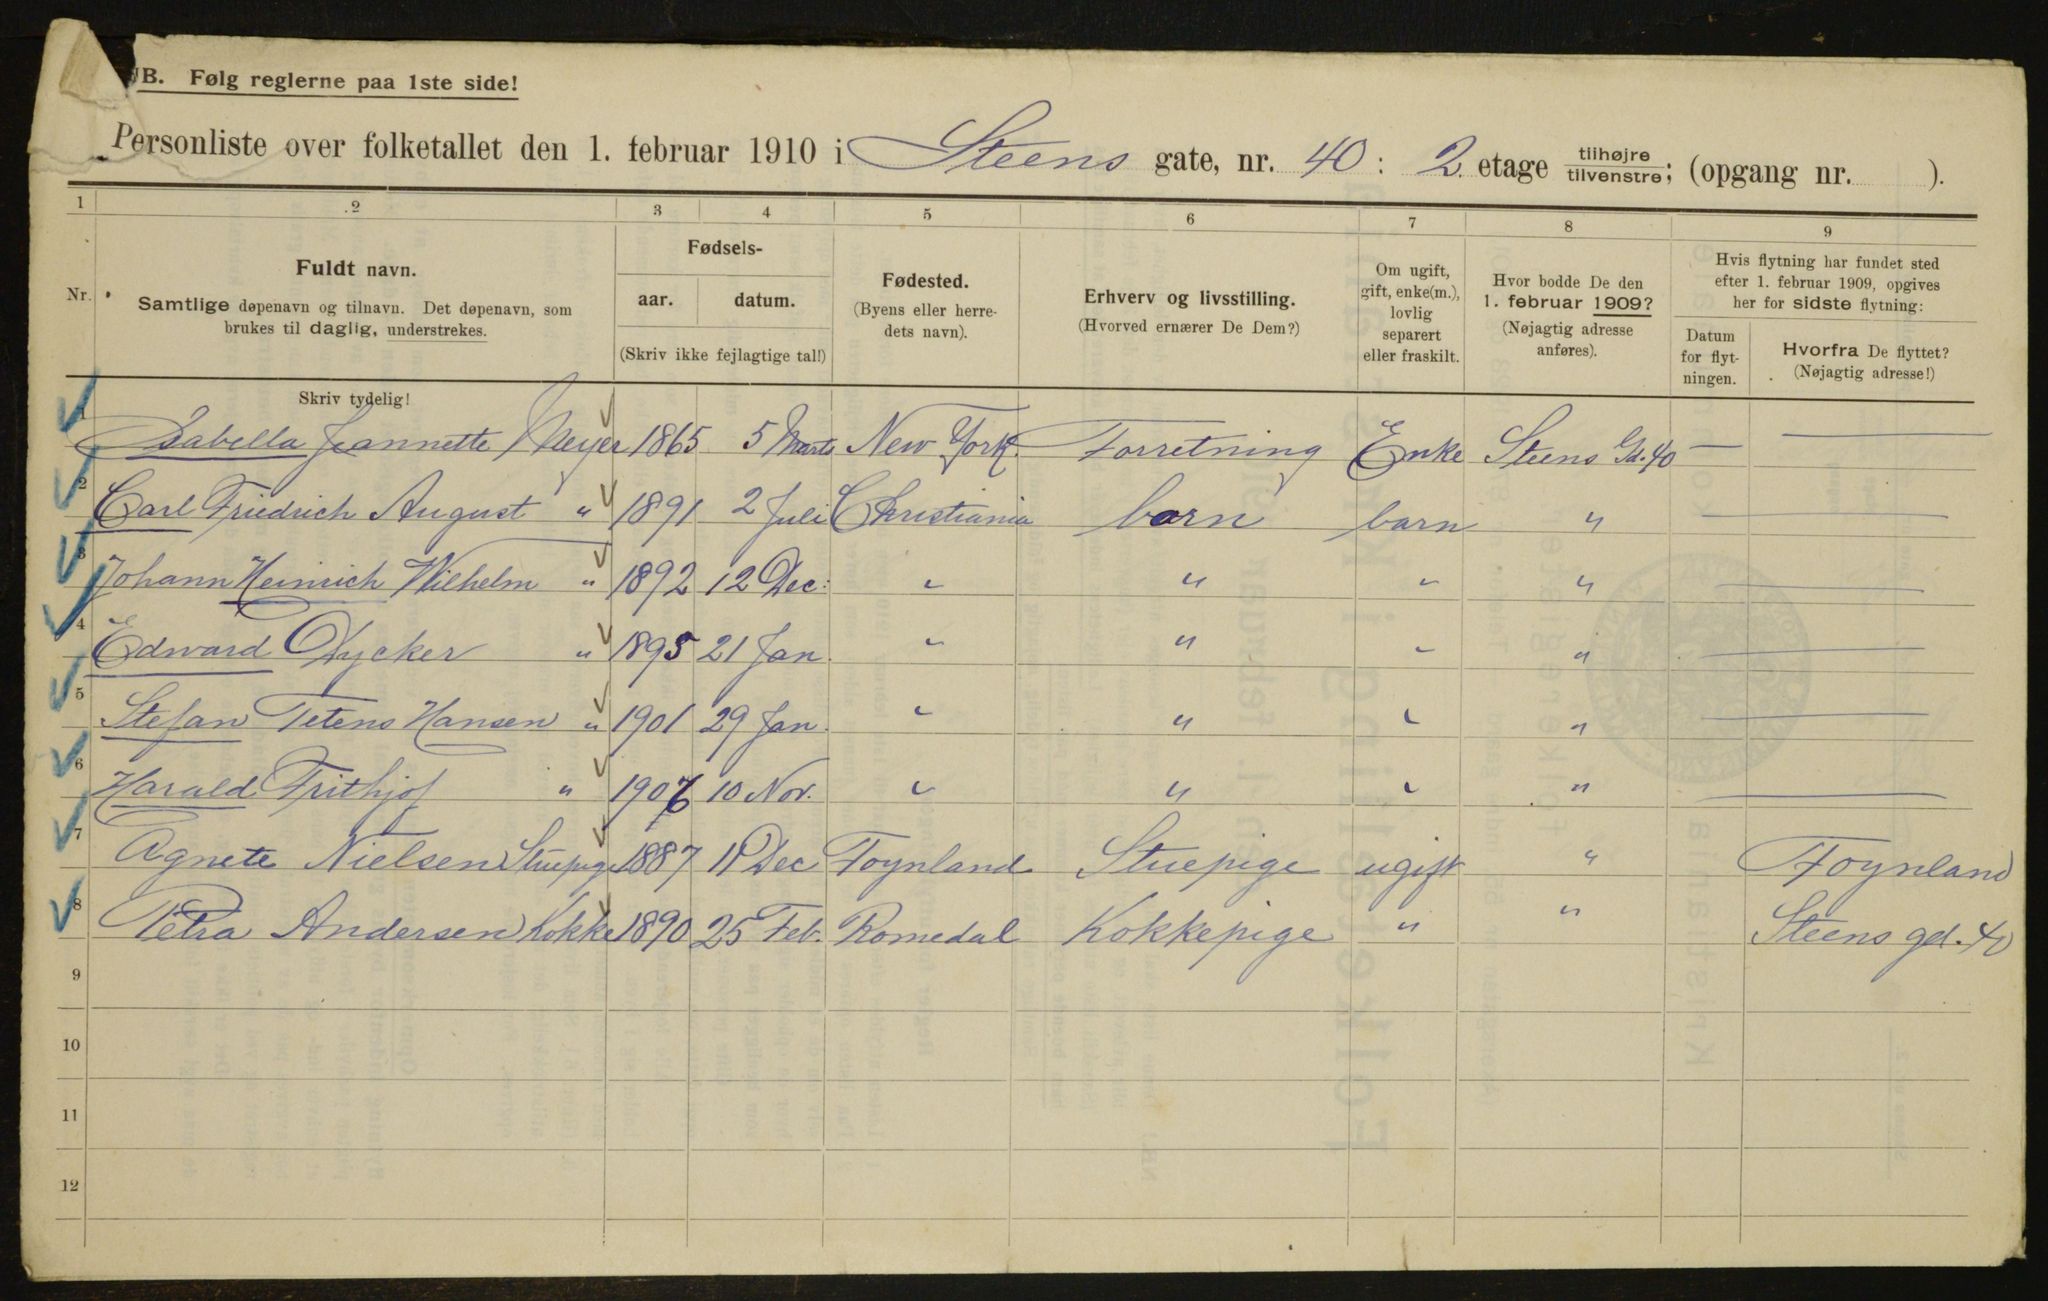 NB. Følg reglerne paa 1ste side!
Personliste over folketallet den 1. februar 1910 i Steens gate, nr. 40 : 2. etage tilhøjre tilvenstre; (opgang nr. ).
1 2 3 4 5 6 7 8 9
Nr.
Fuldt navn.
Samtlige døpenavn og tilnavn. Det døpenavn, som
brukes til daglig, understrekes.
Skriv tydelig!
Fødsels-
aar. datum.
(Skriv ikke fejlagtige tal!)
Fødested.
(Byens eller herre-
dets navn).
Erhverv og livsstilling.
(Hvorved ernærer De Dem?)
Om ugift,
gift, enke(m.),
lovlig
separert
eller fraskilt.
Hvor bodde De den
1. februar 1909?
(Nøjagtig adresse
anføres).
Hvis flytning har fundet sted
efter 1. februar 1909, opgives
her for sidste flytning:
Datum
for flyt-
ningen.
Hvorfra De flyttet?
(Nøjagtig adresse!)
1 Isabella Jeannette Meyer 1865 5 Marts New York. Forretning Enke Steens Gd. 40 — —
2 Carl Friedrich August " 1891 2 Juli Christiania barn barn " —
3 Johann Heinrich Wilhelm " 1892 12 Dec: " " " " —
4 Edward Dycker " 1895 21 Jan. " " " " —
5 Stefan Tetens Hansen " 1901 29 Jan. " " " " —
6 Harald Frithjof " 1906 10 Nov. " " " " —
7 Agnete Nielsen Stuepige 1887 11 Dec Foynland Stuepige ugift " Foynland
8 Petra Andersen Kokke 1890 25 Feb. Romedal Kokkepige " " Steens gd. 40
9
10
11
12